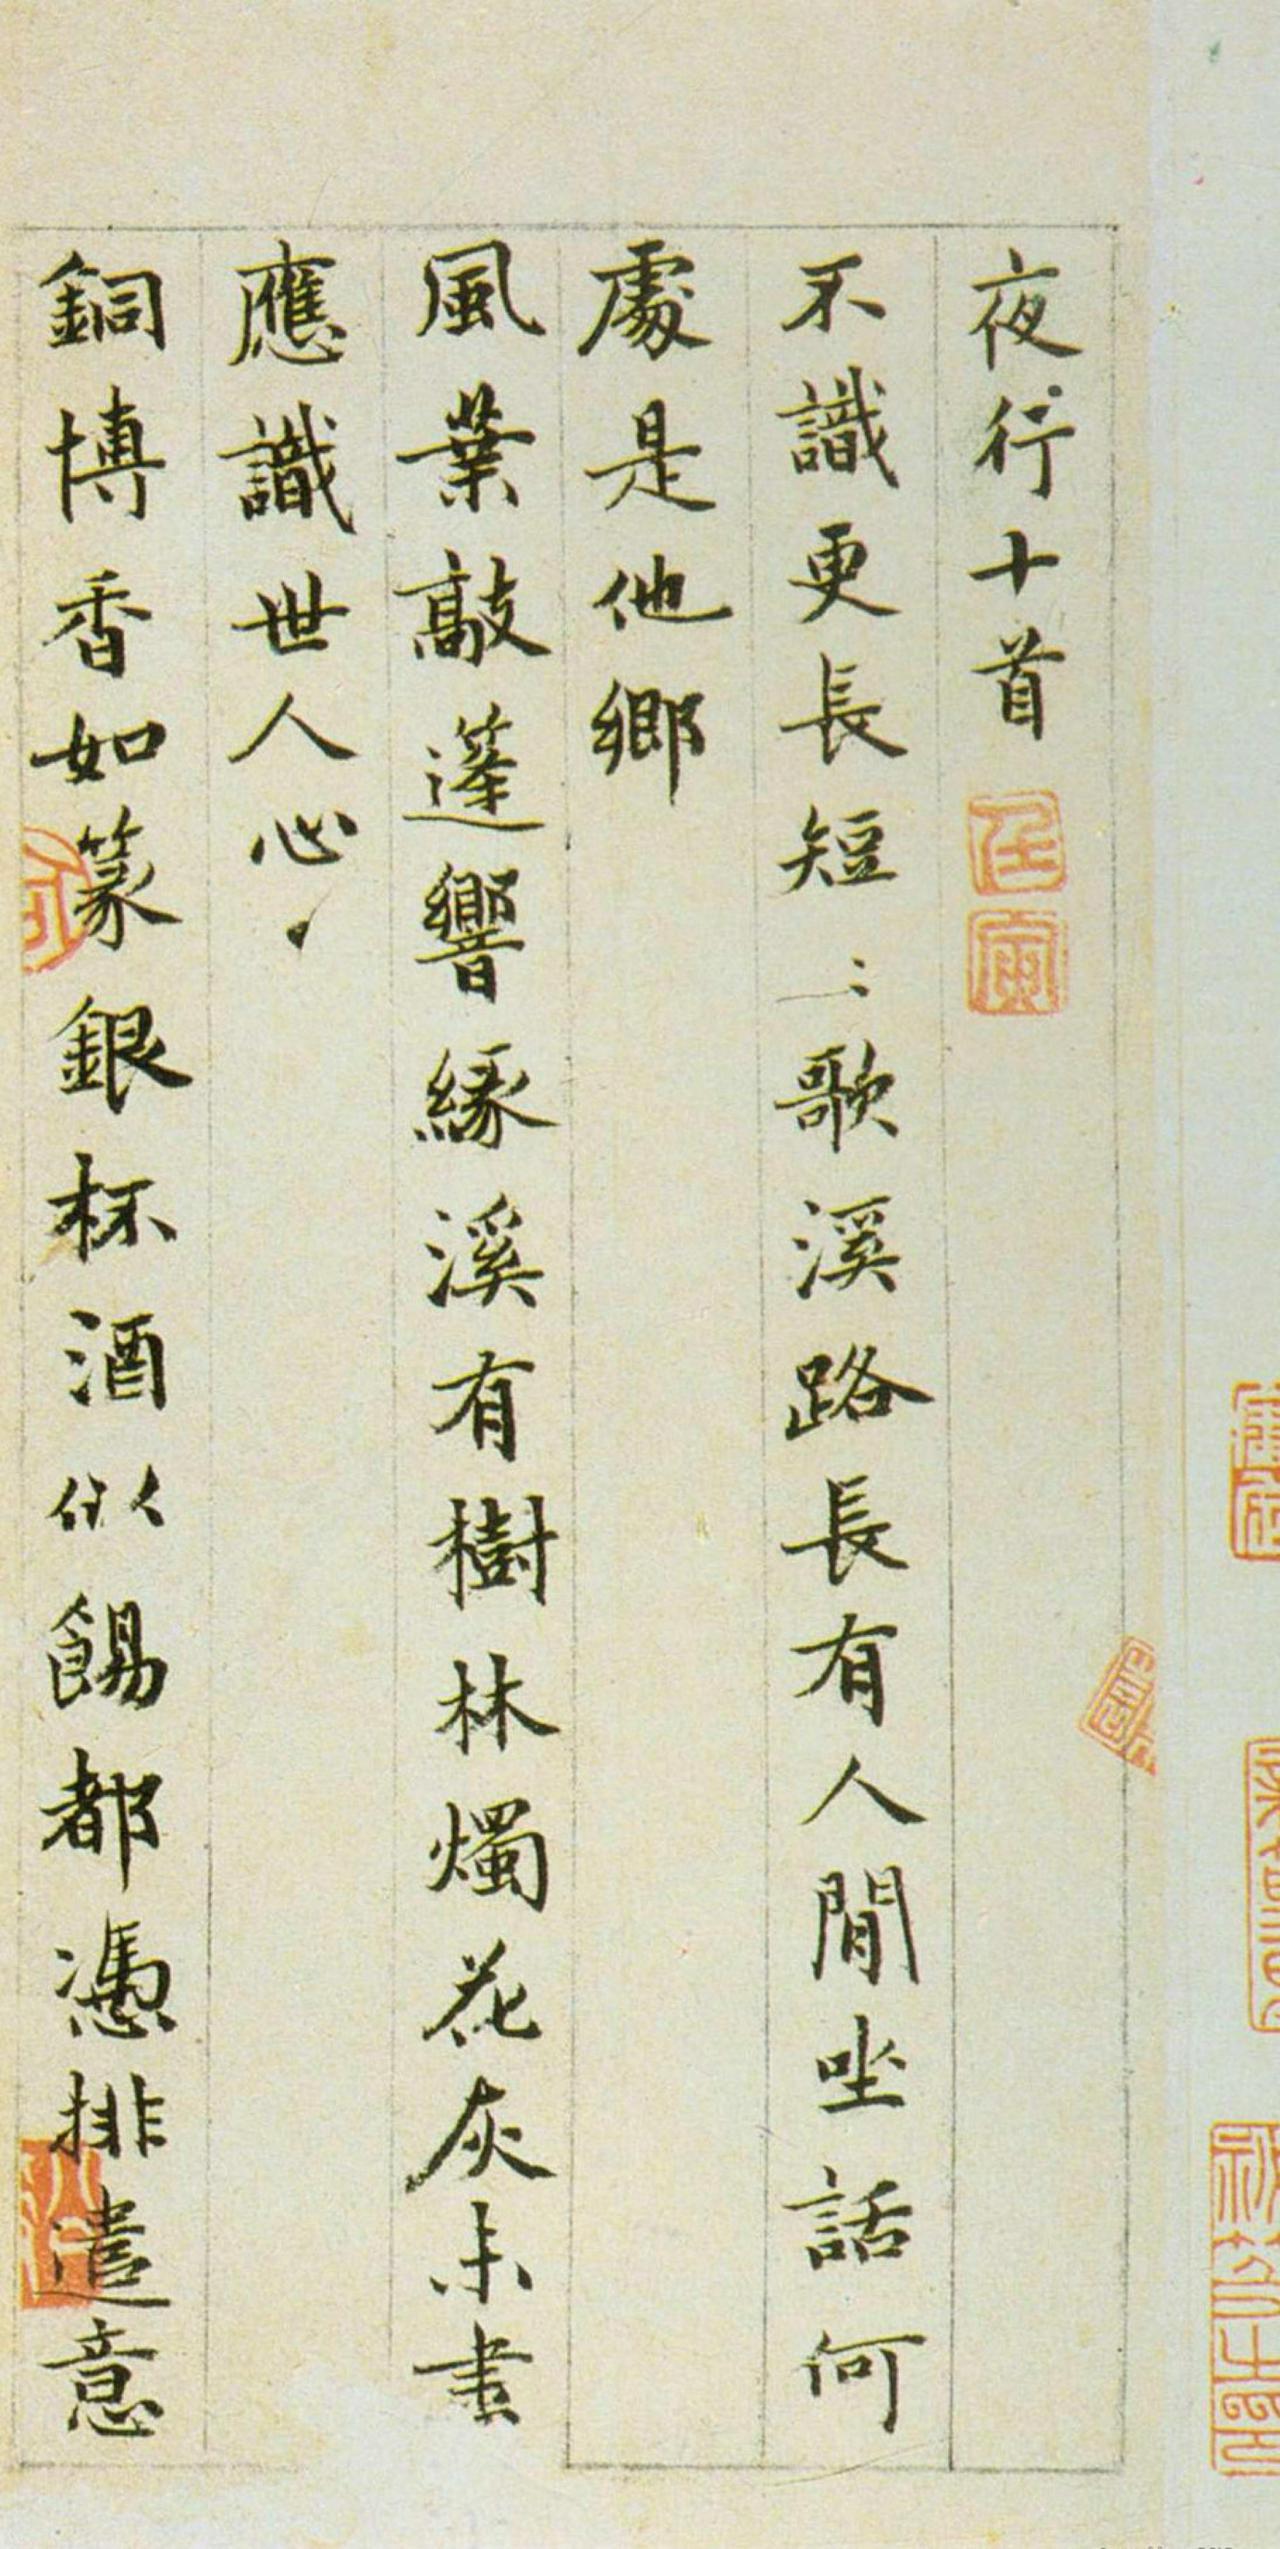 夜行十首
不識更長短〻歌溪路長有人閒坐話何
處是他鄉
風葉敲蓬響緣溪有樹林燭花灰未盡
應識世人心
銅博香如篆銀杯酒似餳都憑排遣意